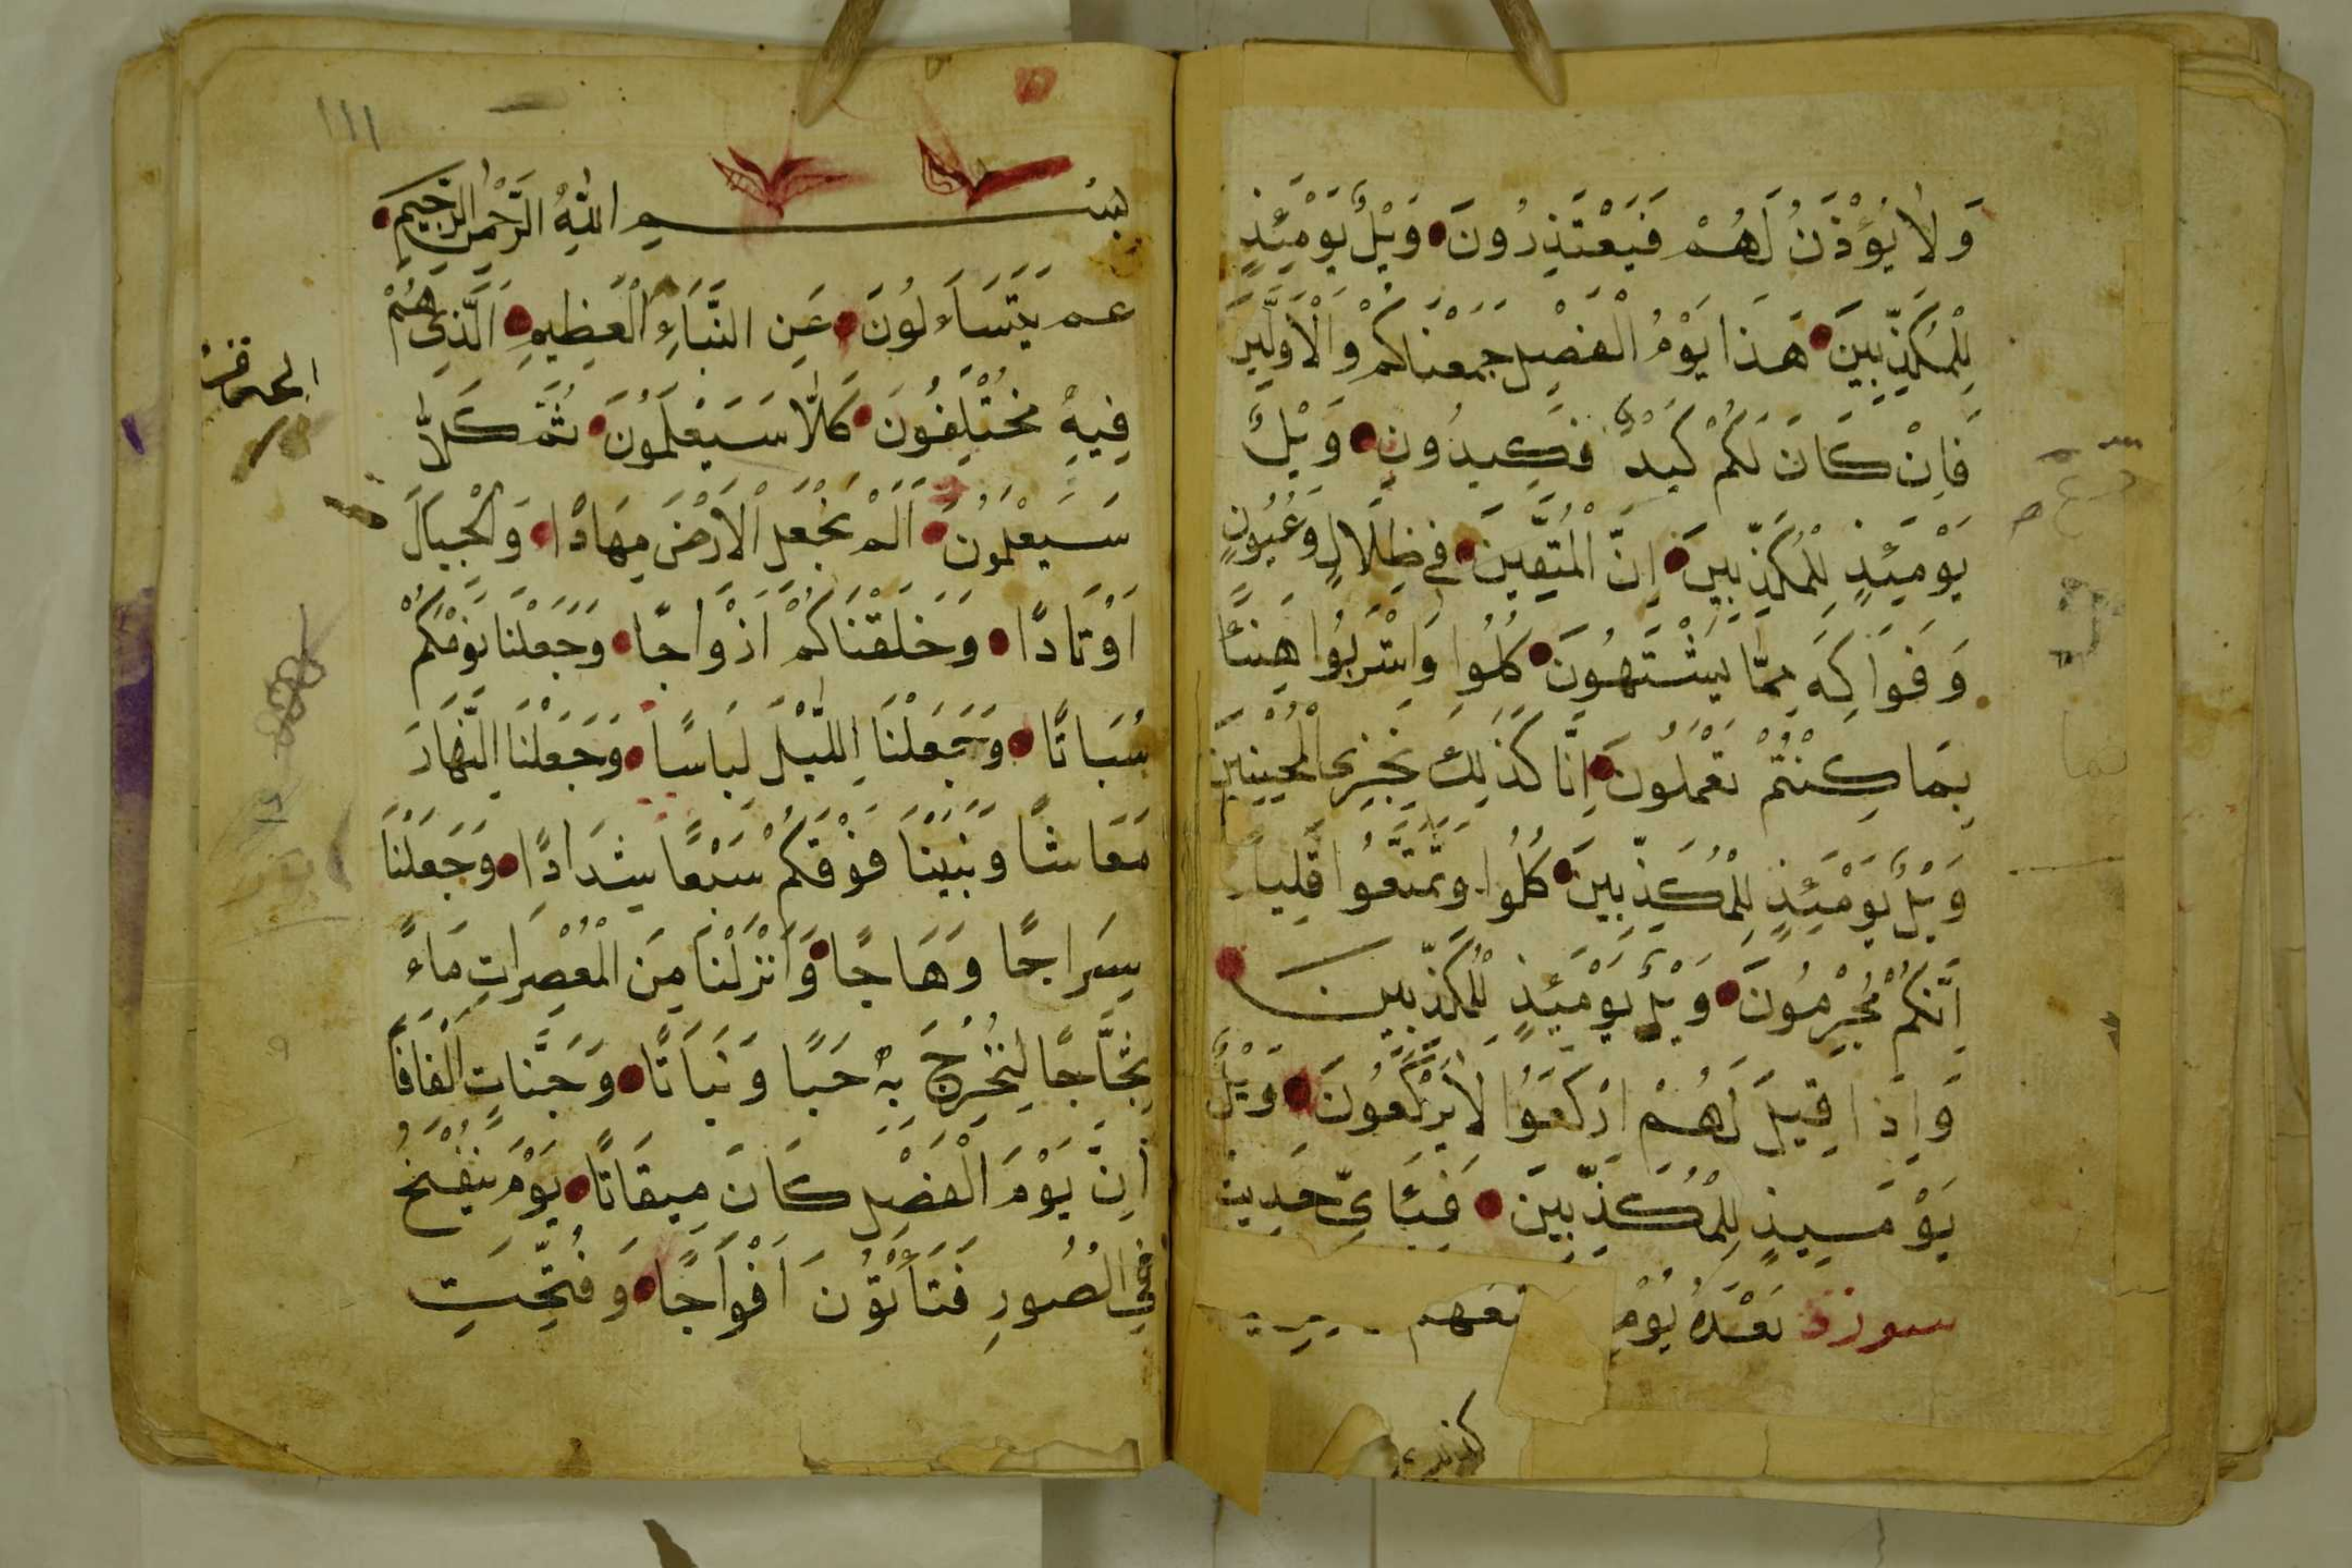 وَلَا يُؤْذَنُ لَهُمْ فَيَعْتَذِرُونَ وَيْلٌ يَوْمَئِذٍ
لِلْمُكَذِّبِينَ هَذَا يَوْمُ الْفَصْلِ جَمَعْنَاكُمْ وَالْأَوَّلِينَ
فَاِنْ كَانَ لَكُمْ كَيْدٌ فَكِيدُونِ وَيْلٌ
يَوْمَئِذٍ لِلْمُكَذِّبِينَ اِنَّ الْمُتَّقِينَ فِي ظِلَالٍ وَعُيُونٍ
وَفَوَاكِهَ مِمَّا يَشْتَهُونَ كُلُوا وَاشْرَبُوا هَنِيئًا
بِمَا كُنْتُمْ تَعْمَلُونَ اِنَّا كَذَلِكَ نَجْزِي الْمُحْسِنِينَ
وَيْلٌ يَوْمَئِذٍ لِلْمُكَذِّبِينَ كُلُوا وَتَمَتَّعُوا قَلِيلًا
اِنَّكُمْ مُجْرِمُونَ وَيْلٌ يَوْمَئِذٍ لِلْمُكَذِّبِينَ
وَاِذَا قِيلَ لَهُمُ ارْكَعُوا لَا يَرْكَعُونَ وَيْلٌ
يَوْمَئِذٍ لِلْمُكَذِّبِينَ فَبِاَيِّ حَدِيثٍ
سورة بَعْدَهُ يُؤْمِ
١١١
بِسْمِ اللّٰهِ الرَّحْمٰنِ الرَّحِيمِ
عم يَتَسَاءَلُونَ عَنِ النَّبَاِ الْعَظِيمِ اَلَّذِي هُمْ
فِيهِ مُخْتَلِفُونَ كَلَّا سَيَعْلَمُونَ ثُمَّ كَلَّا
سَيَعْلَمُونَ اَلَمْ نَجْعَلِ الْاَرْضَ مِهَادًا وَالْجِبَالَ
اَوْتَادًا وَخَلَقْنَاكُمْ اَزْوَاجًا وَجَعَلْنَا نَوْمَكُمْ
سُبَاتًا وَجَعَلْنَا اللَّيْلَ لِبَاسًا وَجَعَلْنَا النَّهَارَ
مَعَاشًا وَبَنَيْنَا فَوْقَكُمْ سَبْعًا شِدَادًا وَجَعَلْنَا
سِرَاجًا وَهَاجًا وَاَنْزَلْنَا مِنَ الْمُعْصِرَاتِ مَاءً
ثَجَّاجًا لِنُخْرِجَ بِهِ حَبًّا وَنَبَاتًا وَجَنَّاتٍ اَلْفَافًا
اِنَّ يَوْمَ الْفَصْلِ كَانَ مِيقَاتًا يَوْمَ يُنْفَخُ
فِي الصُّورِ فَتَأْتُونَ اَفْوَاجًا وَفُتِّحَتِ